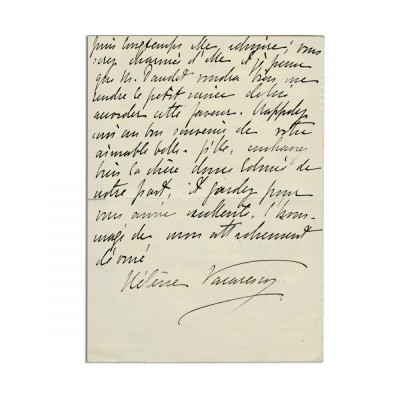 puis longtemps elle admire! vous
serez charmés d'elle et je pense
que M. Daudet voudra bien me
rendre le petit service de lui
accorder cette faveur. Rappelez
moi au bon souvenir de votre
aimable belle-fille, embrassez
bien la chère
notre part, et gardez pour
vous amie excellente, l'hom-
mage de mon attachement
dévoué
Hélène Vacaresco